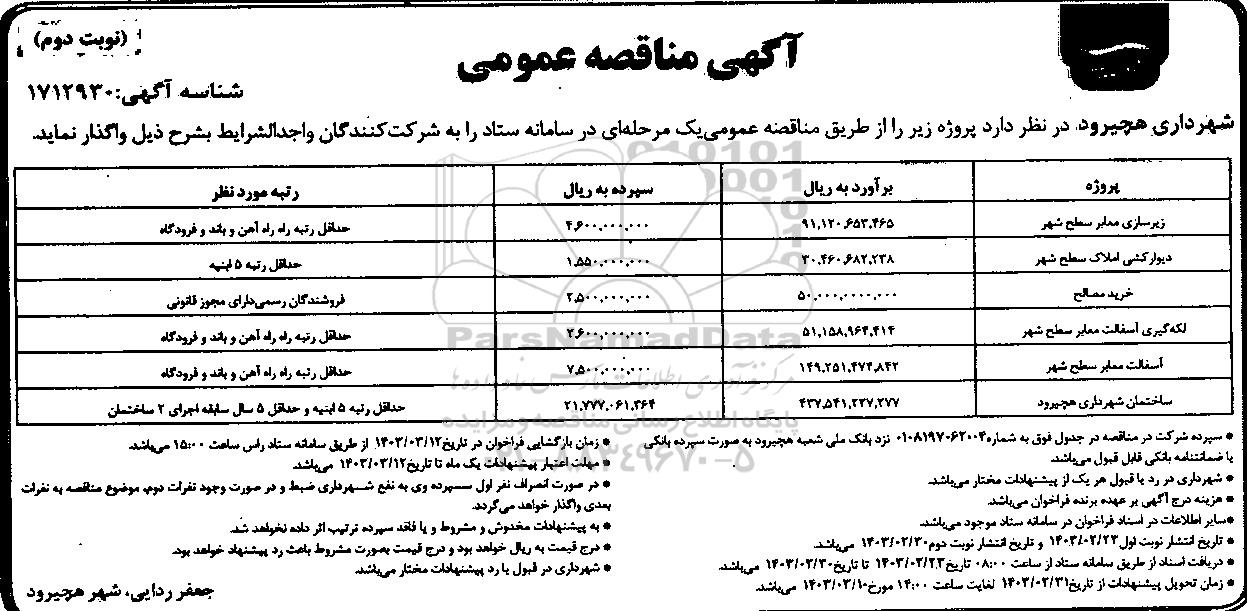 (نوبت دوم)
آگهی مناقصه عمومی
شناسه آگهی:۱۷۱۲۹۳۰
شهرداری هجیرود، در نظر دارد پروژه زیر را از طریق مناقصه عمومی‌یک مرحله‌ای در سامانه ستاد را به شرکت‌کنندگان واجدالشرایط بشرح ذیل واگذار نماید.
پروژه برآورد به ریال سپرده به ریال رتبه مورد نظر
زیرسازی معابر سطح شهر ۹۱,۱۲۰,۶۵۳,۴۶۵ ۴,۶۰۰,۰۰۰,۰۰۰ حداقل رتبه راه راه آهن و باند و فرودگاه
دیوارکشی املاک سطح شهر ۳۰,۴۶۰,۶۸۲,۲۳۸ ۱,۵۵۰,۰۰۰,۰۰۰ حداقل رتبه ۵ ابنیه
خرید مصالح ۵۰,۰۰۰,۰۰۰,۰۰۰ ۲,۵۰۰,۰۰۰,۰۰۰ فروشندگان رسمی‌دارای مجوز قانونی
لکه‌گیری آسفالت معابر سطح شهر ۵۱,۱۵۸,۹۶۴,۴۱۴ ۲,۶۰۰,۰۰۰,۰۰۰ حداقل رتبه راه راه آهن و باند و فرودگاه
آسفالت معابر سطح شهر ۱۴۹,۲۵۱,۴۷۴,۸۴۲ ۷,۵۰۰,۰۰۰,۰۰۰ حداقل رتبه راه راه آهن و باند و فرودگاه
ساختمان شهرداری هجیرود ۴۳۷,۵۴۱,۲۲۷,۲۷۷ ۲۱,۷۷۷,۰۶۱,۳۶۴ حداقل رتبه ۵ ابنیه و حداقل ۵ سال سابقه اجرای ۲ ساختمان
ParsNamadData
پایگاه اطلاع رسانی مناقصه و مزایده
۰۲۱-۸۸۳۴۹۶۷۰-۵
* سپرده شرکت در مناقصه در جدول فوق به شماره۰۱۰۸۱۹۷۰۶۲۰۰۴ نزد بانک ملی شعبه هجیرود به صورت سپرده بانکی
یا ضمانتنامه بانکی قابل قبول می‌باشد.
* شهرداری در رد یا قبول هر یک از پیشنهادات مختار می‌باشد.
* هزینه درج آگهی بر عهده برنده فراخوان می‌باشد.
*سایر اطلاعات در اسناد فراخوان در سامانه ستاد موجود می‌باشد.
* تاریخ انتشار نوبت اول۱۴۰۳/۰۲/۲۳ و تاریخ انتشار نوبت دوم۱۴۰۳/۰۲/۳۰ می‌باشد.
* دریافت اسناد از طریق سامانه ستاد از ساعت ۰۸:۰۰ تاریخ۱۴۰۳/۰۲/۲۳ تا تاریخ۱۴۰۳/۰۲/۳۰ می‌باشد.
* زمان تحویل پیشنهادات از تاریخ۱۴۰۳/۰۲/۳۱ لغایت ساعت ۱۴:۰۰ مورخ۱۴۰۳/۰۳/۱۰ می‌باشد.
* زمان بازگشایی فراخوان در تاریخ۱۴۰۳/۰۳/۱۲ از طریق سامانه ستاد راس ساعت ۱۵:۰۰ می‌باشد.
* مهلت اعتبار پیشنهادات یک ماه تا تاریخ۱۴۰۳/۰۳/۱۲ می‌باشد.
* در صورت انصراف نفر اول سپرده وی به نفع شهرداری ضبط و در صورت وجود نفرات دوم، موضوع مناقصه به نفرات
بعدی واگذار خواهد می‌گردد.
* به پیشنهادات مخدوش و مشروط و یا فاقد سپرده ترتیب اثر داده نخواهد شد.
* درج قیمت به ریال خواهد بود و درج قیمت بصورت مشروط باعث رد پیشنهاد خواهد بود.
* شهرداری در قبول یا رد پیشنهادات مختار می‌باشد.
جعفر ردایی، شهر هجیرود